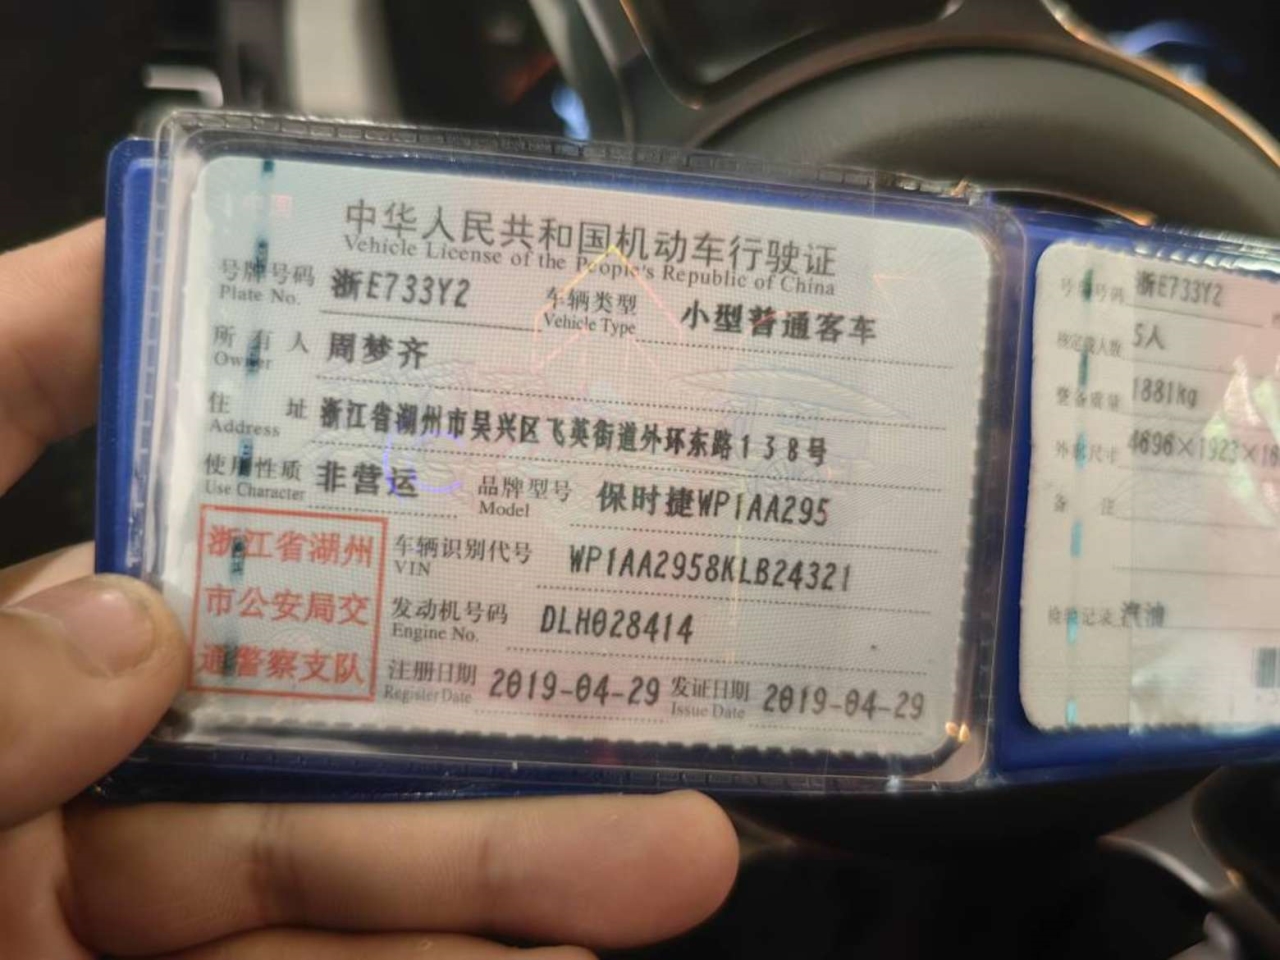 中华人民共和国机动车行驶证
Vehicle License of the People's Republic of China
号牌号码 浙E733Y2 车辆类型 小型普通客车
Plate No. Vehicle Type
所有人 周梦齐
Owner
住址 浙江省湖州市吴兴区飞英街道外环东路138号
Address
使用性质 非营运 品牌型号 保时捷WP1AA295
Use Character Model
浙江省湖州
市公安局交
通警察支队
车辆识别代号 WP1AA2958KLB24321
VIN
发动机号码 DLH028414
Engine No.
注册日期 2019-04-29 发证日期 2019-04-29
Register Date Issue Date
号牌号码 浙E733Y2
核定载人数 5人
整备质量 1881kg
外廓尺寸 4696×1923×16
备注
检验记录 汽油